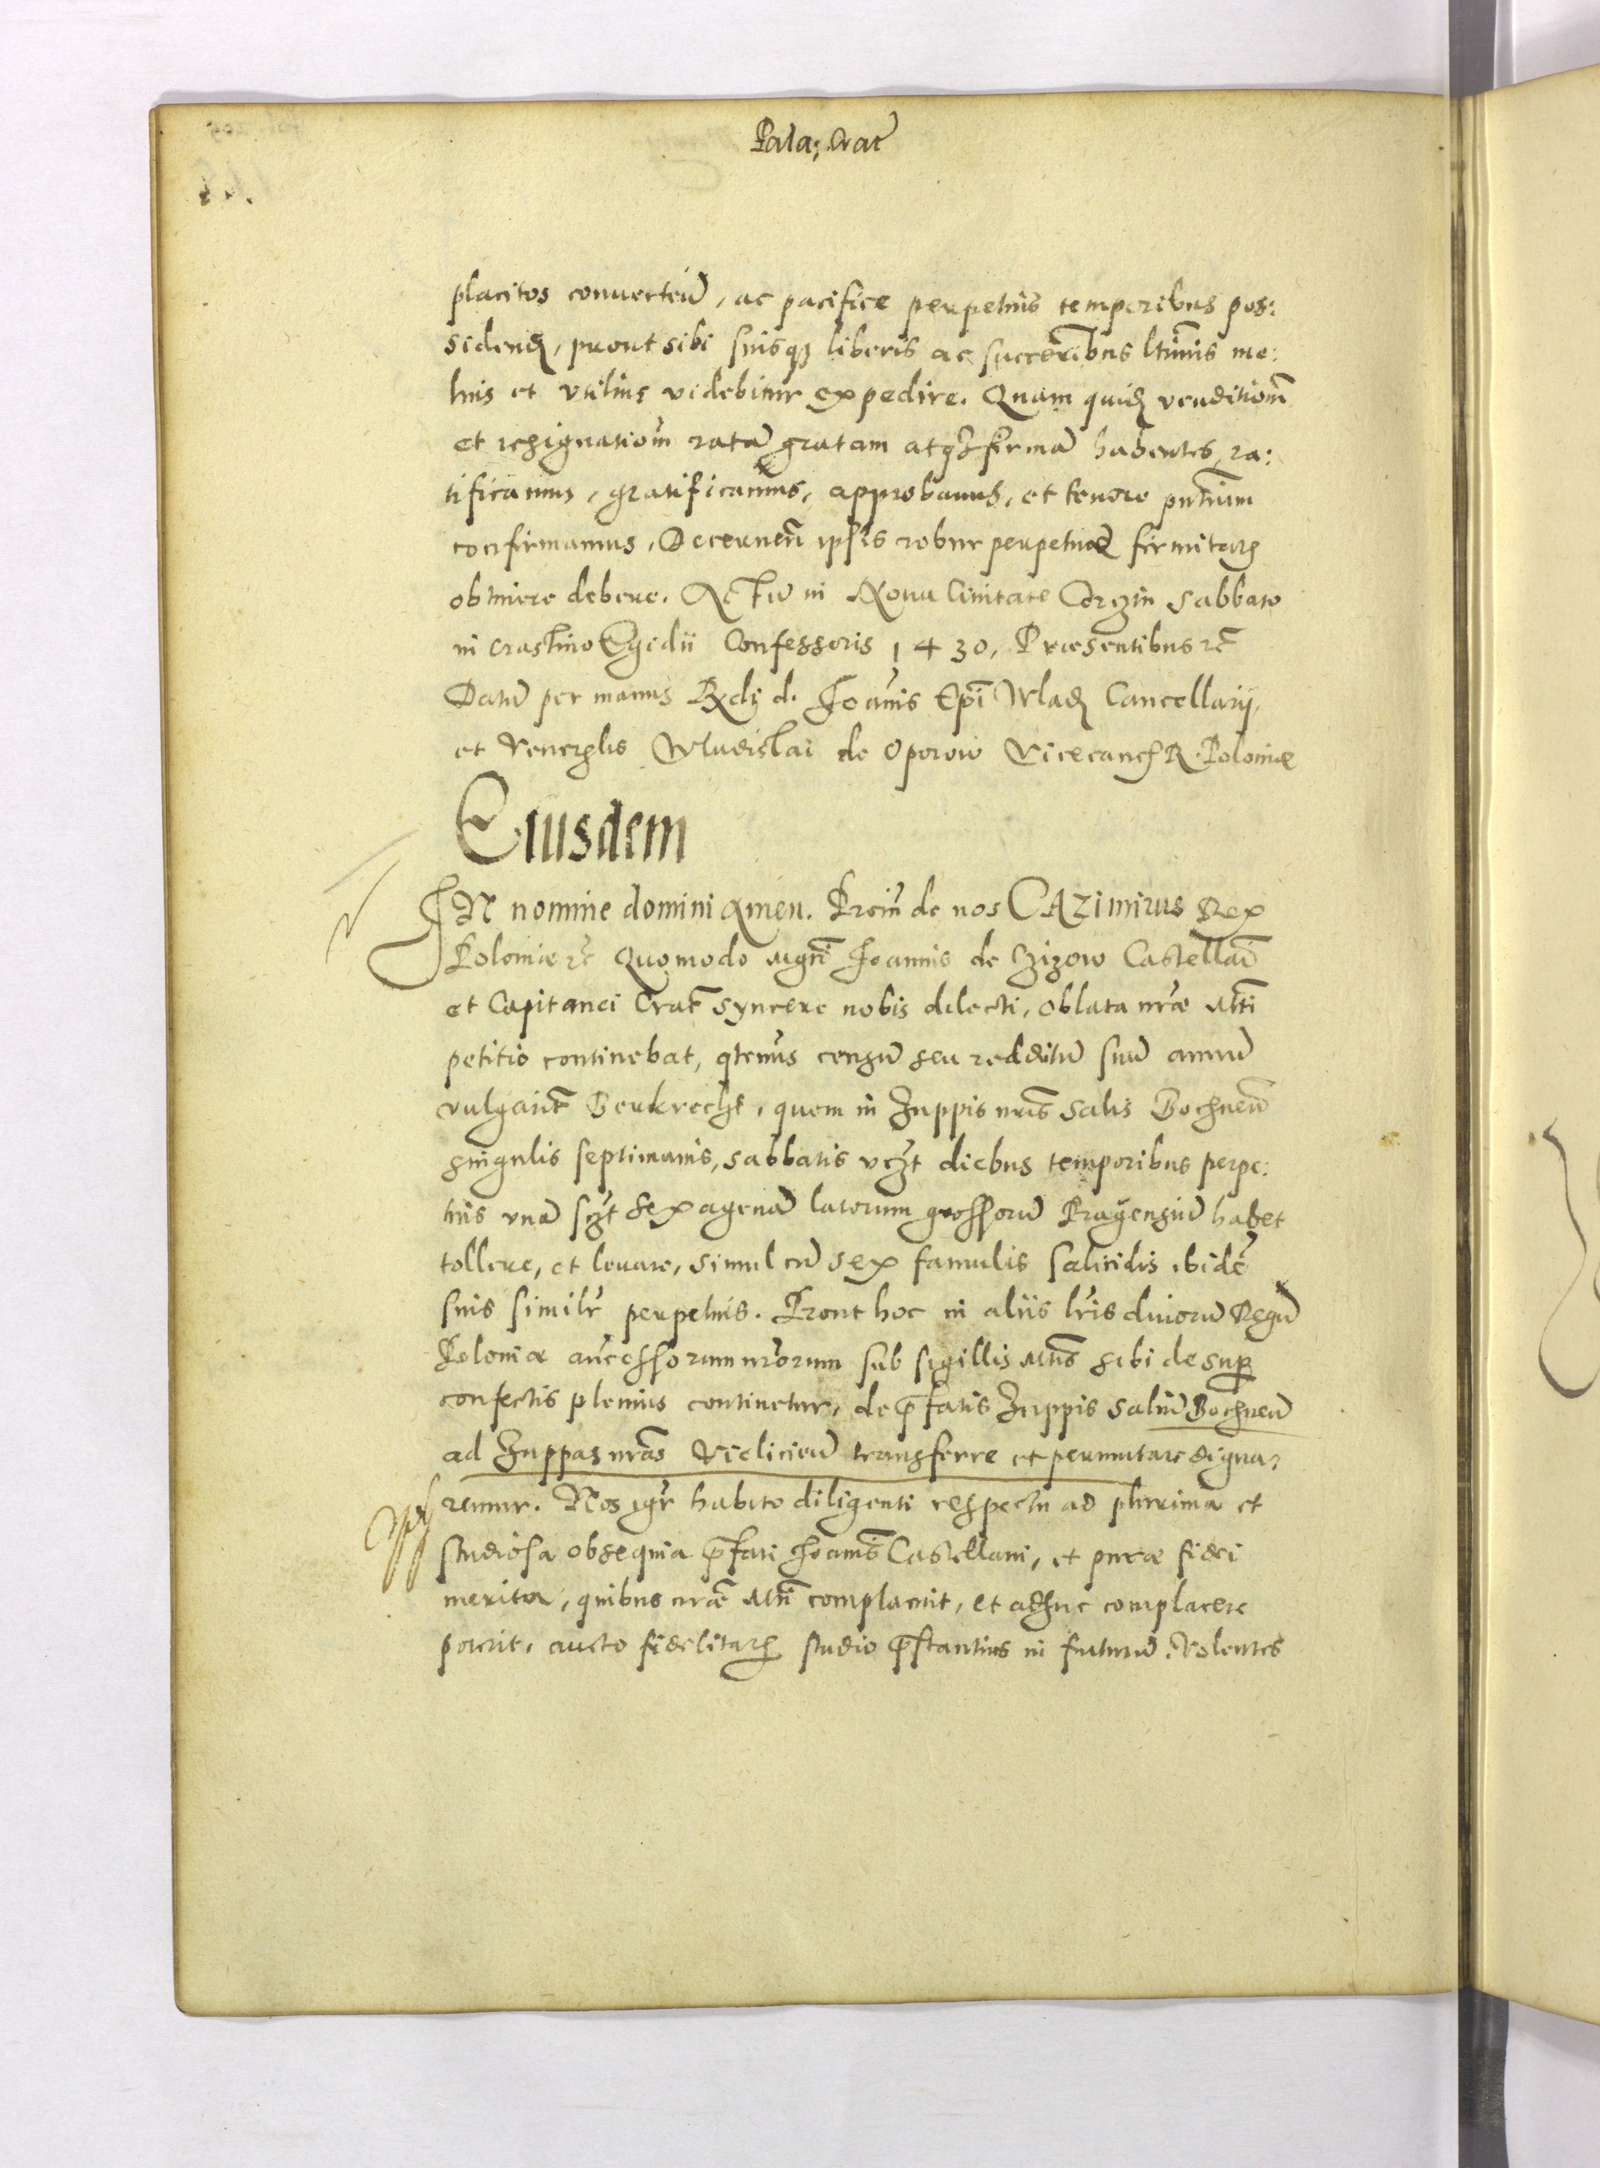 Pala: Crac̃
placitos conuerteñ, ac pacifice perpetuis temporibus pos:
sidend, prout sibi suisqꝫ liberis ac successoribus ltimis me:
lius et vtilius videbitur expedire. Quam quid venditiom̃
et resignatiom̃ ratã gratam atqꝫ firmã habentes, ra:
tificamus, gratificamus, approbamus, et tenore pñtium
confirmamus, Decerneñ ipsis robur perpetuæ firmitatis
obtinere debere. Actũ in Noua Ciuitate Corczin Sabbato
in crastino Egidii Confessoris 1430, Præsentibus &c
Datũ per manus Rꝫdi d. Joañis Epĩ Wlad Cancellarij,
et Venerablis Wladislai de Oporow Vicecanc R. Poloniæ
Eiusdem
IN nomine domini Amen. Proiñ de nos CAZimirus Rex
Poloniæ &c Quomodo Mgñi Joannis de Czizow Castellañi
et Capitanei Crac̃ syncere nobis dilecti, oblata nr̃æ Mti
petitio continebat, qtenus censũ seu redditũ suũ annuũ
vulgarit̃ Berkrecht, quem in Zuppis nr̃is Salis Bochneñ
singulis septimanis, sabbatis vczt diebus temporibus perpe:
tuis vnã sczt sexagenã latorum grossorũ Pragensiũ habet
tollere, et leuare, simul cũ sex famulis salicidis ibidẽ
suis similr̃ perpetuis. Prout hoc in aliis lr̃is diuorũ Regũ
Poloniæ añcessorum nr̃orum sub sigillis Mtis sibi desup
confectis plenius continetur, de p̃fatis Zuppis saliũ Bochneñ
ad Zuppas nr̃as Vieliciеñ transferre et permutare digna:
remur. Nos igr̃ habito diligenti respectu ad plurima et
studiosa obsequia p̃fati Joannis Castellani, et puræ fidei
merita, quibus nr̃æ Mti complacuit, et adhuc complacere
poterit, aucto fidelitatis studio p̃stantius in futurũ. Volentes